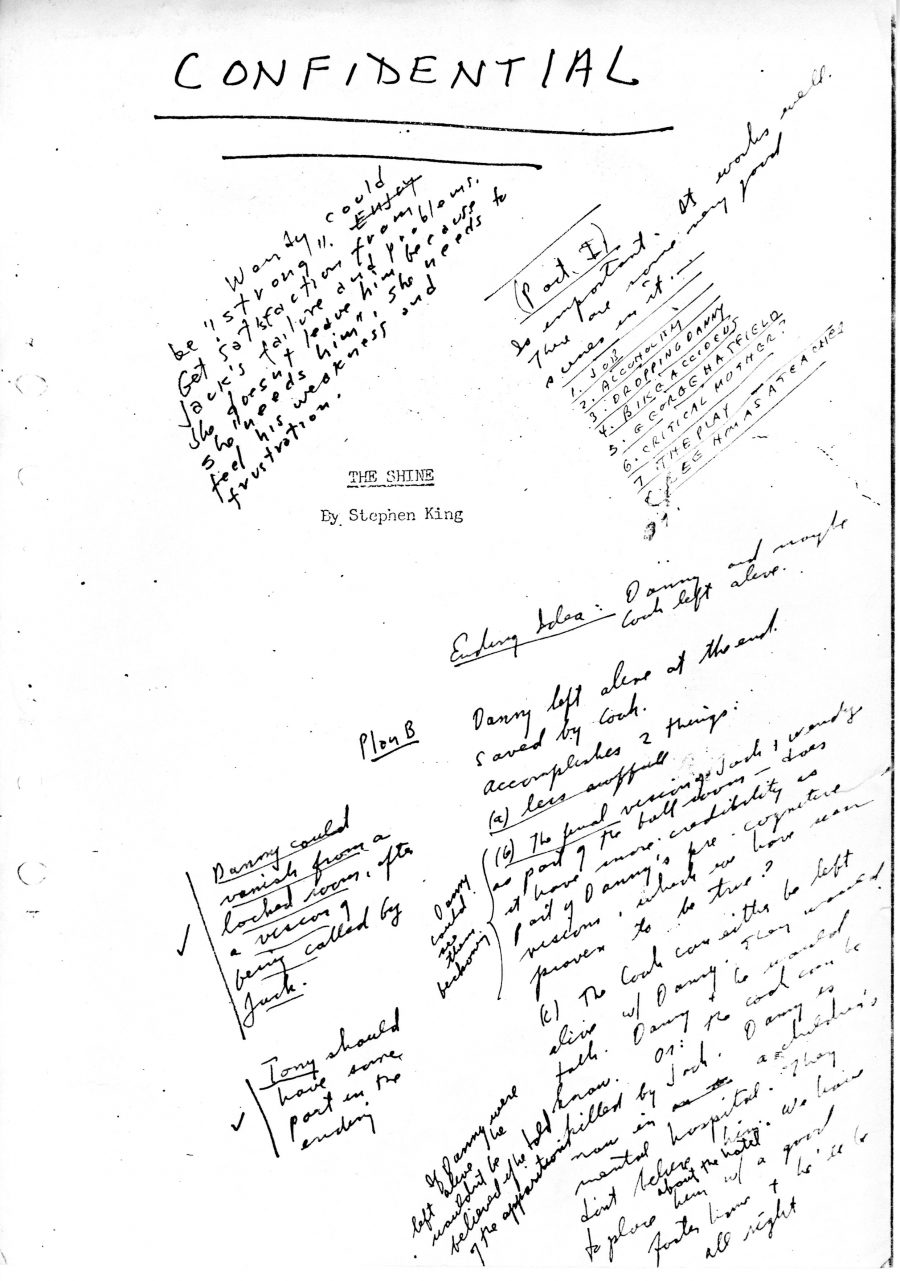 CONFIDENTIAL
Wendy could
be "strong". Enjoy
Get satisfaction from
Jack's failure and problems.
She doesn't leave him because
she "needs him", she needs to
feel his weakness and
frustration.
(Part I)
Is important. It works well.
There are some very good
scenes in it.
1. JOB
2. ALCOHOLISM
3. DROPPING DANNY
4. BIKE ACCIDENT
5. GEORGE HATFIELD
6. CRITICAL MOTHER?
7. THE PLAY
SEE HIM AS A TEACHER
THE SHINE
By Stephen King
Ending Idea: Danny and maybe
Cook left alive.
Plan B
Danny left alive at the end.
Saved by Cook.
Accomplishes 2 things:
(a) less
(b) The final vision, Jack & Wendy
as part of the ball room – does
it have more credibility as
part of Danny's pre-cognitive
visions, which we have seen
proven to be true?
Danny
could
see
them
beckoning
(c) The Cook can either be left
alive w/ Danny. They would
talk. Danny & he would
know. Or: the cook can be
killed by Jack. Danny is
now in a children's
mental hospital. They
don't believe him. We have
about the hotel
to place him w/ a good
foster home & he'll be
all right
Danny could
vanish from a
locked room, after
a vision of
being called by
Jack.
Tony should
have some
part in the
ending
If Danny were
left alive he
wouldn't be
believed if he told
of the apparitions